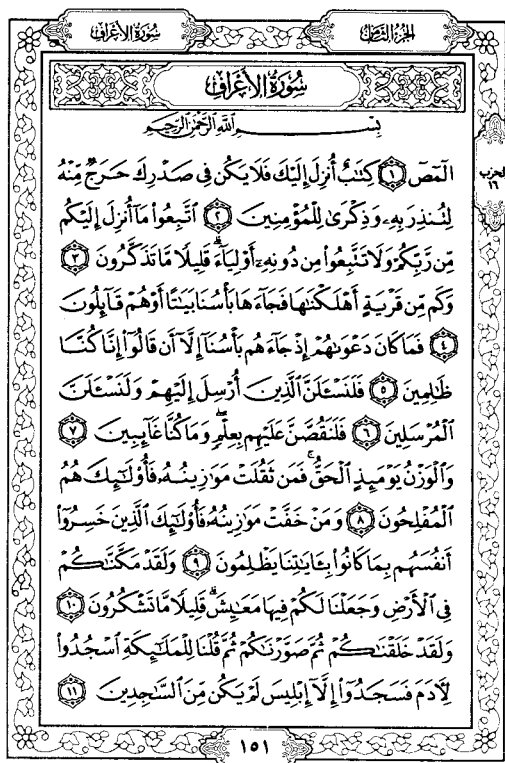 سُورَةُ الأَعْرَافِ
الجزء الثامن
سُورَةُ الأَعْرَافِ
بِسْمِ اللَّهِ الرَّحْمَٰنِ الرَّحِيمِ
الحزب
١٦
الٓمٓصٓ ١ كِتَٰبٌ أُنزِلَ إِلَيْكَ فَلَا يَكُن فِى صَدْرِكَ حَرَجٌ مِّنْهُ
لِتُنذِرَ بِهِۦ وَذِكْرَىٰ لِلْمُؤْمِنِينَ ٢ ٱتَّبِعُوا۟ مَآ أُنزِلَ إِلَيْكُم
مِّن رَّبِّكُمْ وَلَا تَتَّبِعُوا۟ مِن دُونِهِۦٓ أَوْلِيَآءَ ۗ قَلِيلًا مَّا تَذَكَّرُونَ ٣
وَكَم مِّن قَرْيَةٍ أَهْلَكْنَٰهَا فَجَآءَهَا بَأْسُنَا بَيَٰتًا أَوْ هُمْ قَآئِلُونَ
٤ فَمَا كَانَ دَعْوَىٰهُمْ إِذْ جَآءَهُم بَأْسُنَآ إِلَّآ أَن قَالُوٓا۟ إِنَّا كُنَّا
ظَٰلِمِينَ ٥ فَلَنَسْـَٔلَنَّ ٱلَّذِينَ أُرْسِلَ إِلَيْهِمْ وَلَنَسْـَٔلَنَّ
ٱلْمُرْسَلِينَ ٦ فَلَنَقُصَّنَّ عَلَيْهِم بِعِلْمٍ ۖ وَمَا كُنَّا غَآئِبِينَ ٧
وَٱلْوَزْنُ يَوْمَئِذٍ ٱلْحَقُّ ۚ فَمَن ثَقُلَتْ مَوَٰزِينُهُۥ فَأُو۟لَٰٓئِكَ هُمُ
ٱلْمُفْلِحُونَ ٨ وَمَنْ خَفَّتْ مَوَٰزِينُهُۥ فَأُو۟لَٰٓئِكَ ٱلَّذِينَ خَسِرُوٓا۟
أَنفُسَهُم بِمَا كَانُوا۟ بِـَٔايَٰتِنَا يَظْلِمُونَ ٩ وَلَقَدْ مَكَّنَّٰكُمْ
فِى ٱلْأَرْضِ وَجَعَلْنَا لَكُمْ فِيهَا مَعَٰيِشَ ۗ قَلِيلًا مَّا تَشْكُرُونَ ١٠
وَلَقَدْ خَلَقْنَٰكُمْ ثُمَّ صَوَّرْنَٰكُمْ ثُمَّ قُلْنَا لِلْمَلَٰٓئِكَةِ ٱسْجُدُوا۟
لِـَٔادَمَ فَسَجَدُوٓا۟ إِلَّآ إِبْلِيسَ لَمْ يَكُن مِّنَ ٱلسَّٰجِدِينَ ١١
١٥١